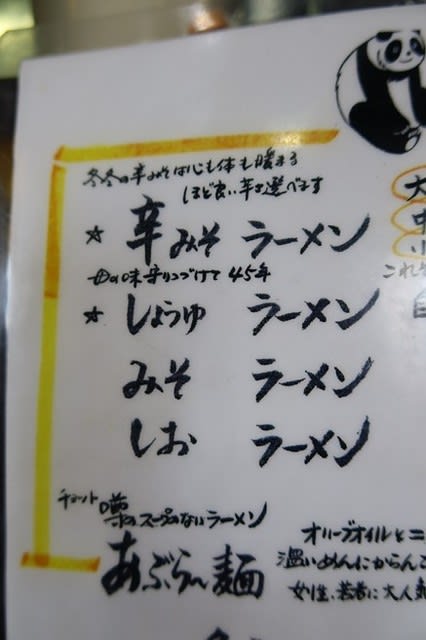 冬冬の辛みそは心も体も暖まる
ほど良い辛さ選べます
★ 辛みそ ラーメン
母の味守りつづけて45年
★ しょうゆ ラーメン
みそ ラーメン
しお ラーメン
チョット噂のスープのないラーメン
あぶら〜麺
大
中
小
これ
オリーブオイルとニ
温いめんにからん
女性、若者に大人気